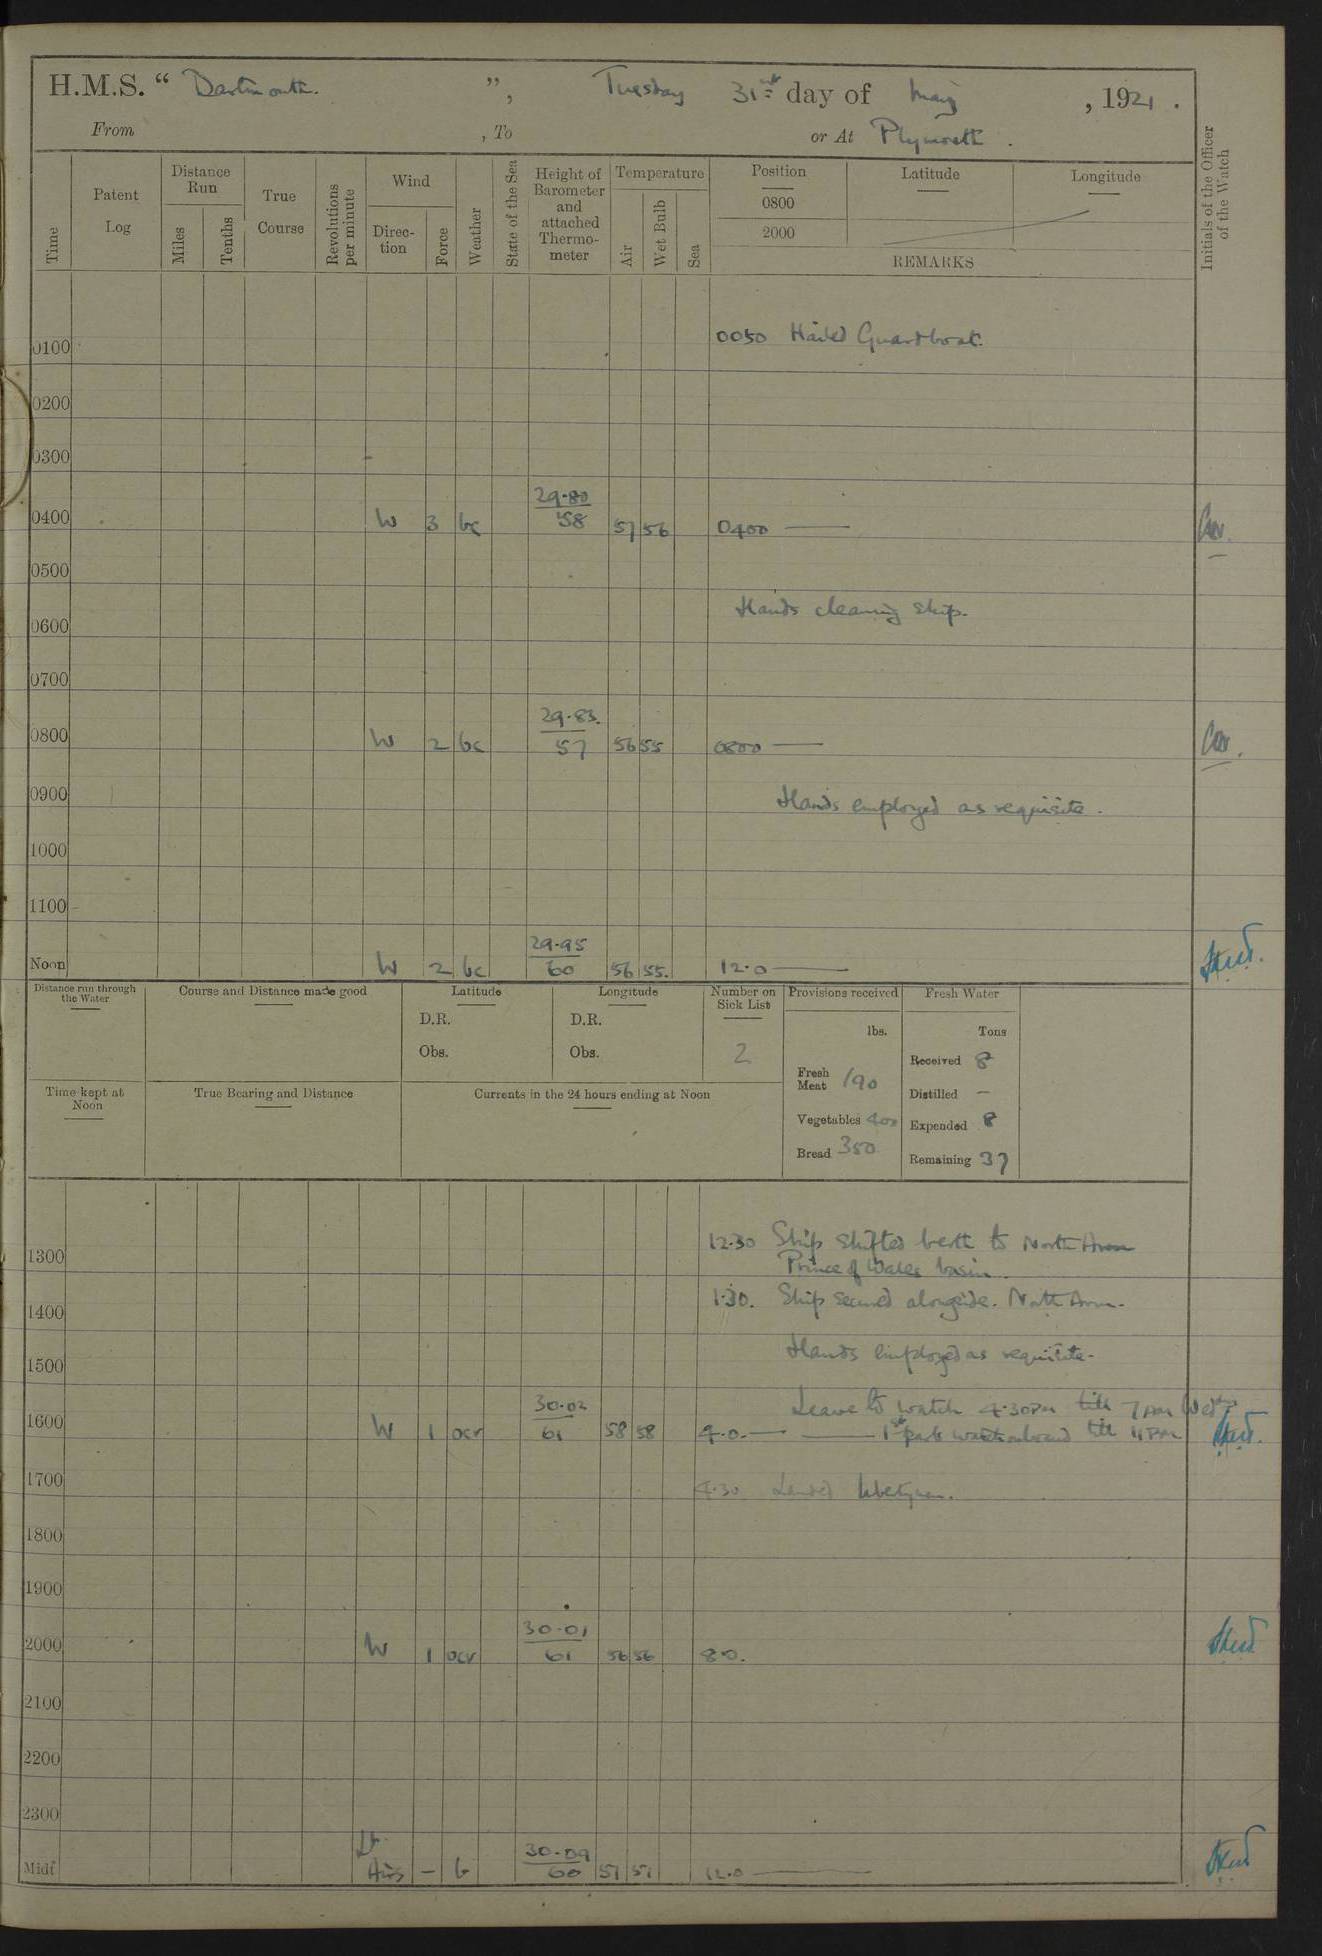 H.M.S. “ Dartmouth. ”, Tuesday 31st day of May , 1921 .
From , To or At Plymouth .
Time
Patent Log
Distance Run
Miles
Tenths
True Course
Revolutions per minute
Wind
Direc-tion
Force
Weather
State of the Sea
Height of Barometer and attached Thermo-meter
Temperature
Air
Wet Bulb
Sea
Position
0800
2000
Latitude
Longitude
REMARKS
Initials of the Officer of the Watch
0100 0050 Hailed Guardboat.
0200
0300
0400 W 3 bc 29.80 58 57 56 0400
0500
Hands cleaning ship.
0600
0700
0800 W 2 bc 29.83. 57 56 55 0800
0900 Hands employed as requisite.
1000
1100
Noon W 2 bc 29.95 60 56 55. 12.0
Distance run through the Water
Course and Distance made good
Latitude
D.R.
Obs.
Longitude
D.R.
Obs.
Number on Sick List
2
Provisions received
lbs.
Fresh Meat 190
Vegetables 400
Bread 350
Fresh Water
Tons
Received 8
Distilled –
Expended 8
Remaining 37
Time kept at Noon
True Bearing and Distance
Currents in the 24 hours ending at Noon
12.30 Ship shifted berth to North Arm
1300 Prince of Wales basin.
1400 1.30. Ship secured alongside. North Arm.
1500 Hands employed as requisite.
Leave to watch 4.30PM till 7AM Wed
1600 W 1 ocr 30.02 61 58 58 4.0. 1st part watch onboard till 11PM
1700 4.30 Landed libertymen.
1800
1900
2000 W 1 ocr 30.01 61 56 56 8.0.
2100
2200
2300
Midt Lt Airs – b 30.09 60 51 51 12.0